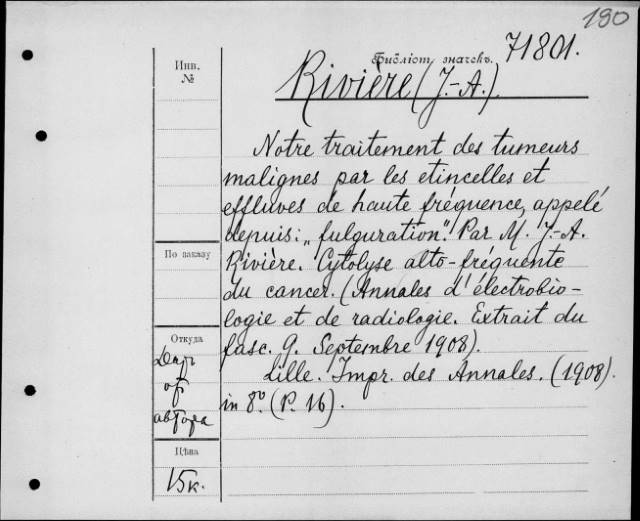 190
71801.
Библіот. значекъ.
Инв.
№
Rivière (J.-A.).
Notre traitement des tumeurs
malignes par les etincelles et
effluves de haute fréquence, appelé
depuis: „fulguration". Par M. J.-A.
Rivière. Cytolyse alto-fréquente
du cancer. (Annales d'électrobio-
logie et de radiologie. Extrait du
fasc. 9. Septembre 1908).
Lille. Impr. des Annales. (1908).
in 8º. (P. 16).
По заказу
Откуда
Даръ
от
автора
Цѣна
15к.